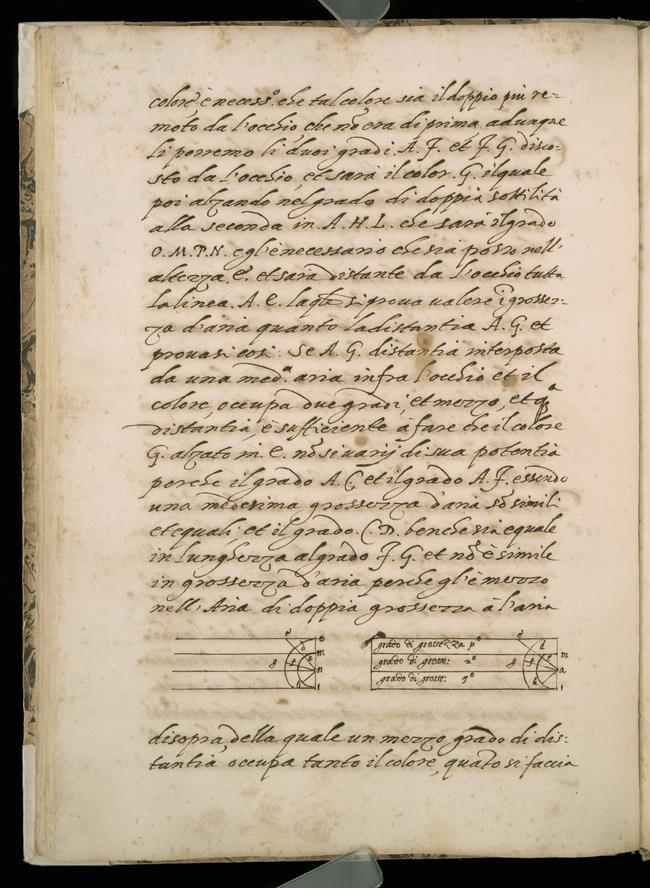 colore è necess.º che tal colore sia il doppio piu re-
moto da l'occhio che nõ era di prima. adunque
li porremo li duoi gradi. A. F. et F. G. disco-
sto da l'occhio, et sarà il color. G. il quale
poi alzando nel grado di doppia sottilità
alla seconda in. A. H. L. che sarà il grado
O. M. P. N. egl'è necessario che sia posto nell'
altezza. E. et sarà distante da l'occhio tutta
la linea. A. E. la qle si prova valere ĩ grossez-
za d'aria quanto la distantia A. G. et
provasi cosi. Se A. G. distantia interposta
da una med.ª aria infra l'occhio et il
colore, occupa due gradi, et mezzo, et qª
distantia, è sufficiente à fare che il colore
G. alzato in. E. nõ si varij di sua potentia
perche il grado A. C, et il grado A. F. essendo
una medesima grossezza d'aria sõ simili
et equali. et il grado. C. D. benche sia equale
in lunghezza al grado F. G. et nõ è simile
in grossezza d'aria perche gl'è mezzo
nell'Aria di doppia grossezza à l'aria
e o
d m
g f n
grado di grossezza pº
grado di grosse: 2º
grado di grosse: 3º
e
d m
g f c a
h
disopra, della quale un mezzo grado di dis:
tantia occupa tanto il colore, quãto si faccia